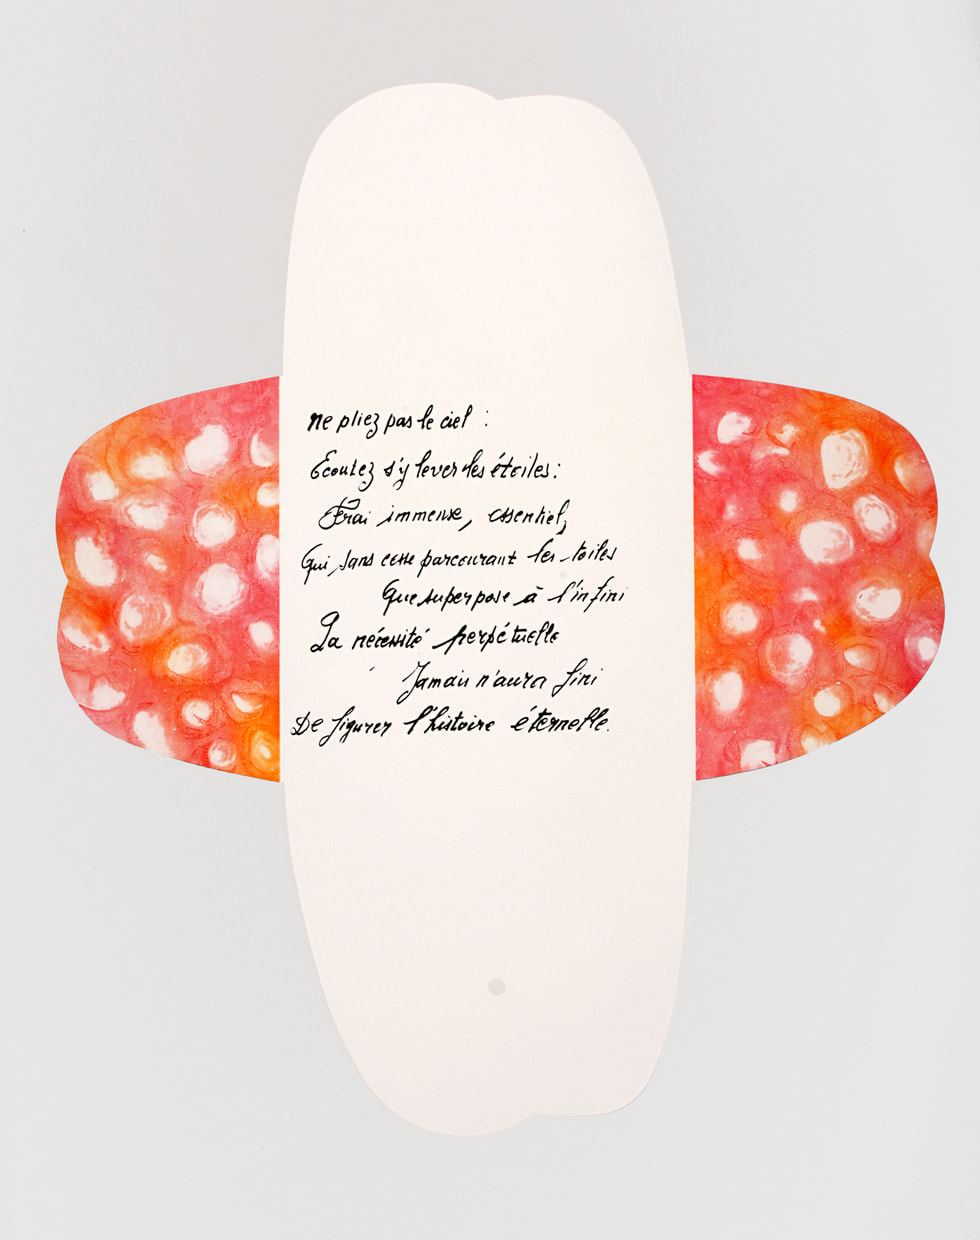 ne pliez pas le ciel :
Ecoutez s'y lever les étoiles :
Frai immense, essentiel,
Qui, sans cesse parcourant les toiles
Que superpose à l'infini
La nécessité perpétuelle
Jamais n'aura fini
De figurer l'histoire éternelle.